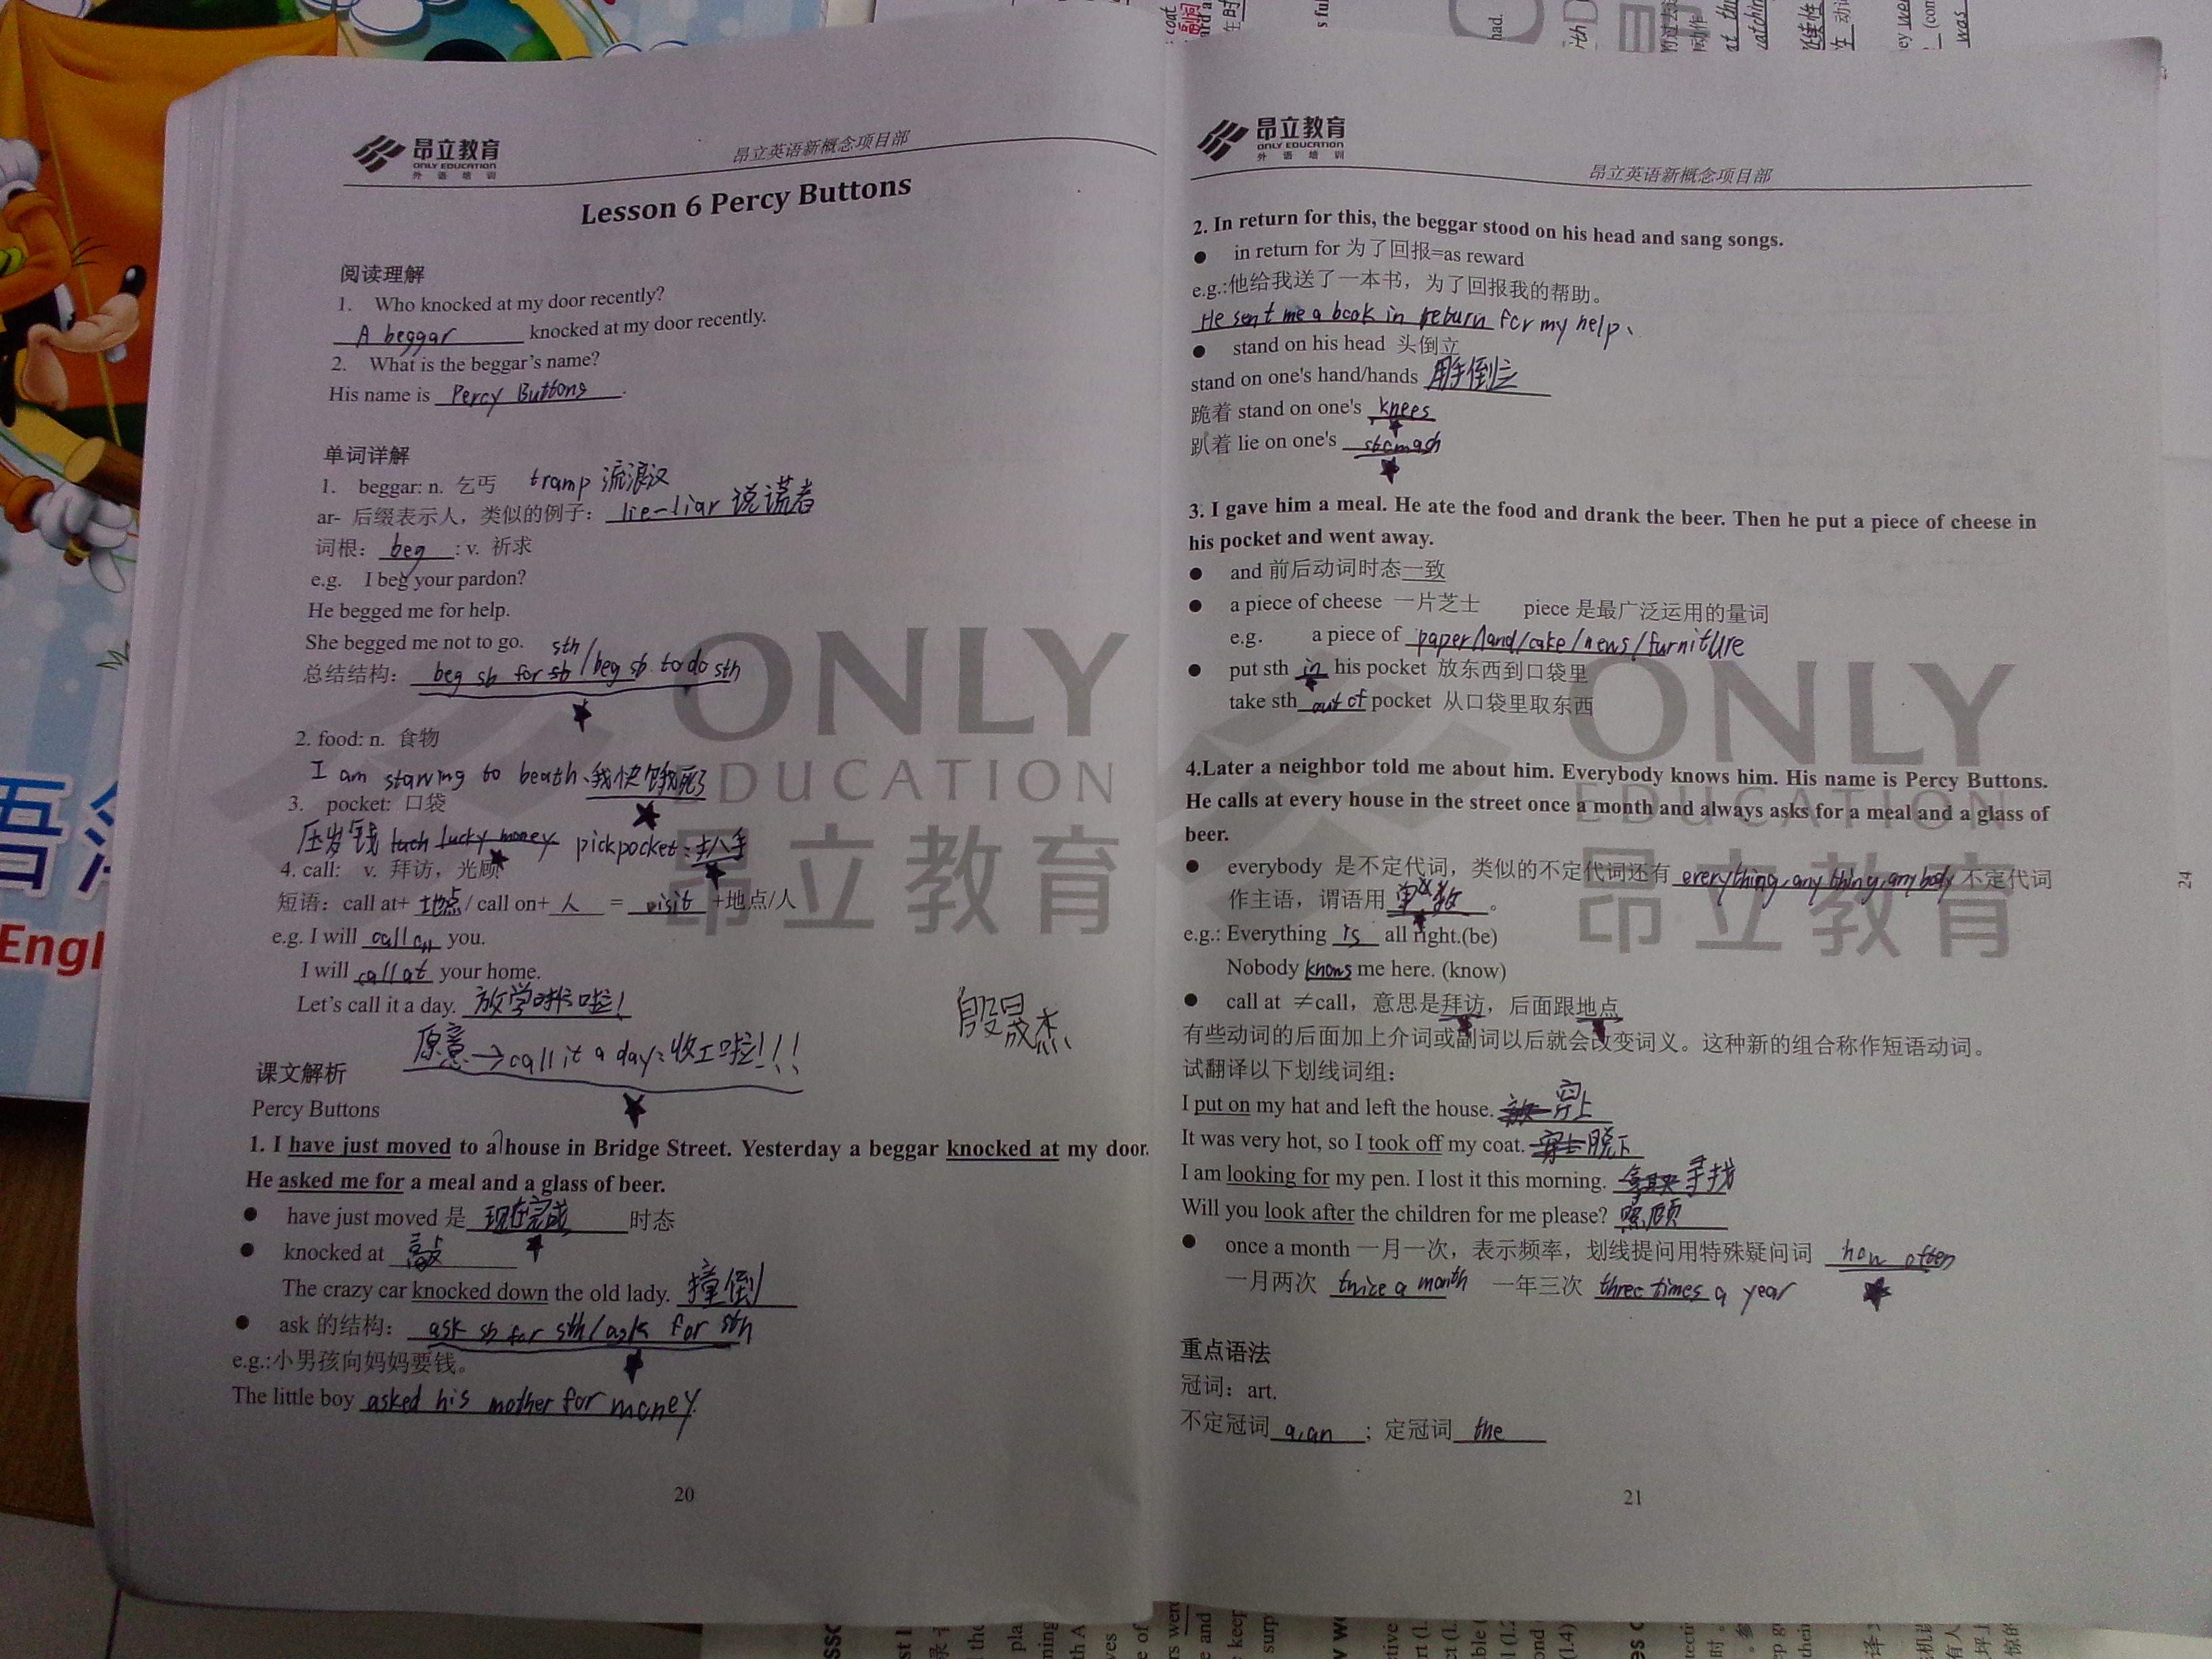 昂立教育
ONLY EDUCATION
外 语 培 训
昂立英语新概念项目部
Lesson 6 Percy Buttons
阅读理解
1. Who knocked at my door recently?
A beggar knocked at my door recently.
2. What is the beggar's name?
His name is Percy Buttons.
单词详解
1. beggar: n. 乞丐 tramp 流浪汉
ar- 后缀表示人，类似的例子：lie-liar 说谎者
词根：beg : v. 祈求
e.g. I beg your pardon?
He begged me for help.
She begged me not to go.
总结结构：beg sb for sb sth/beg sb. to do sth
2. food: n. 食物
I am starving to beath、我快饿死了
3. pocket: 口袋
压岁钱 luch lucky money pickpocket：扒手
4. call: v. 拜访，光顾
短语：call at+ 地点 / call on+ 人 = visit +地点/人
e.g. I will call on you.
I will call at your home.
Let's call it a day. 放学时候啦！
原意→call it a day：收工啦！！！
殷晟杰
课文解析
Percy Buttons
1. I have just moved to a house in Bridge Street. Yesterday a beggar knocked at my door.
He asked me for a meal and a glass of beer.
● have just moved 是 现在完成 时态
● knocked at 敲
The crazy car knocked down the old lady. 撞倒
● ask 的结构：ask sb for sth/ask for sth
e.g.:小男孩向妈妈要钱。
The little boy asked his mother for money.
20
ONLY
EDUCATION
昂立教育
昂立教育
ONLY EDUCATION
外 语 培 训
昂立英语新概念项目部
2. In return for this, the beggar stood on his head and sang songs.
● in return for 为了回报=as reward
e.g.:他给我送了一本书，为了回报我的帮助。
He sent me a book in return for my help、
● stand on his head 头倒立
stand on one's hand/hands 用手倒立
跪着 stand on one's knees
趴着 lie on one's stomach
3. I gave him a meal. He ate the food and drank the beer. Then he put a piece of cheese in
his pocket and went away.
● and 前后动词时态一致
● a piece of cheese 一片芝士 piece 是最广泛运用的量词
e.g. a piece of paper/land/cake/news/furniture
● put sth in his pocket 放东西到口袋里
take sth out of pocket 从口袋里取东西
4.Later a neighbor told me about him. Everybody knows him. His name is Percy Buttons.
He calls at every house in the street once a month and always asks for a meal and a glass of
beer.
● everybody 是不定代词，类似的不定代词还有 everything, any thing, any body 不定代词
作主语，谓语用 单数 。
e.g.: Everything is all right.(be)
Nobody knows me here. (know)
● call at ≠call，意思是拜访，后面跟地点
有些动词的后面加上介词或副词以后就会改变词义。这种新的组合称作短语动词。
试翻译以下划线词组：
I put on my hat and left the house. 穿上
It was very hot, so I took off my coat. 脱下
I am looking for my pen. I lost it this morning. 寻找
Will you look after the children for me please? 照顾
● once a month 一月一次，表示频率，划线提问用特殊疑问词 how often
一月两次 twice a month 一年三次 three times a year
重点语法
冠词：art.
不定冠词 a,an ；定冠词 the
21
ONLY
EDUCATION
昂立教育
24
Engl